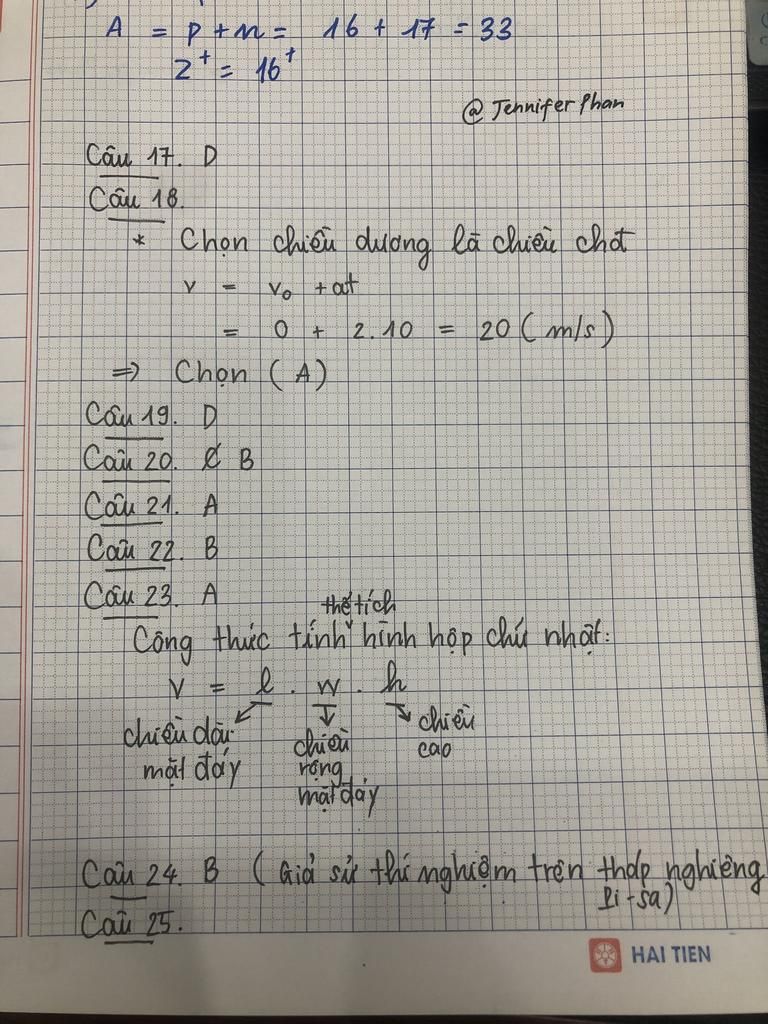 A = p + n = 16 + 17 = 33
Z⁺ = 16⁺
@ Jennifer Phan
Câu 17. D
Câu 18.
* Chọn chiều dương là chiều chđ
v = v₀ + at
= 0 + 2.10 = 20 (m/s)
⇒ Chọn (A)
Câu 19. D
Câu 20. B
Câu 21. A
Câu 22. B
Câu 23. A
thể tích
Công thức tính ˅ hình hộp chữ nhật:
V = l . w . h
chiều dài mặt đáy
chiều rộng mặt đáy
chiều cao
Câu 24. B ( Giả sử thí nghiệm trên tháp nghiêng
Pi-sa)
Câu 25.
HAI TIEN